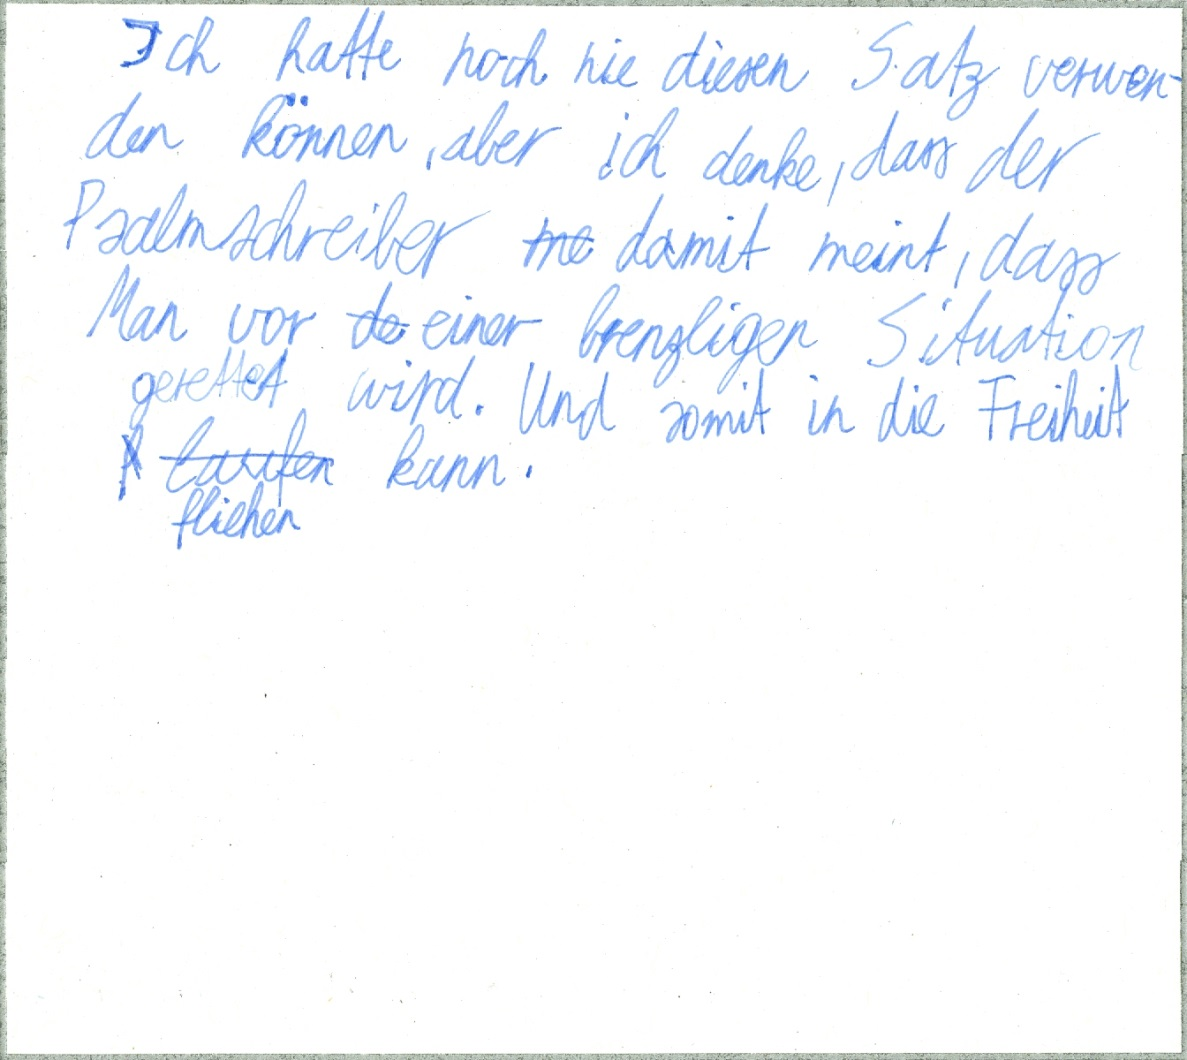 Ich hatte noch nie diesen Satz verwen-
den können, aber ich denke, dass der
Psalmschreiber me damit meint, dass
Man vor de einer brenzligen Situation
gerettet wird. Und somit in die Freiheit
laufen kann.
fliehen